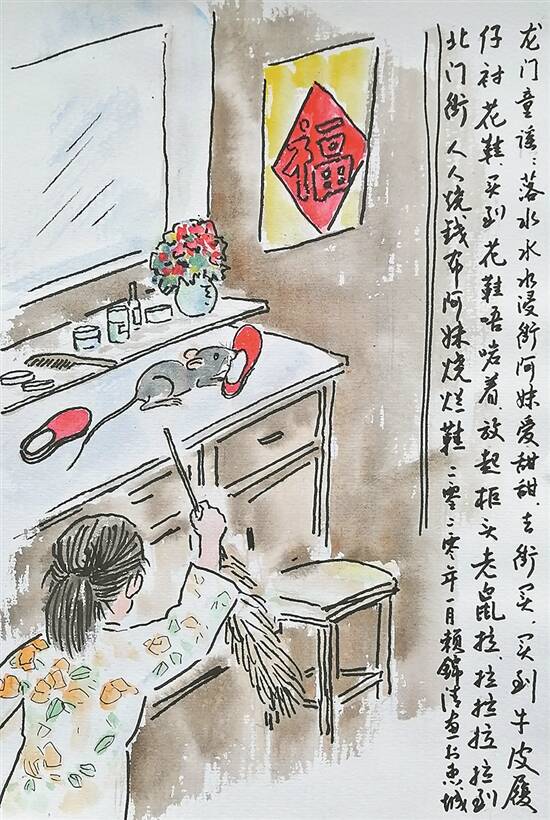 龙门童谣：落水水水浸街阿妹爱甜甜，去街买，买到牛皮屐
仔衬花鞋，买到花鞋唔啱着，放起柜头老鼠拉，拉拉拉拉到
北门街人人烧钱布阿妹烧烂鞋 二零二零年一月赖锦清画于惠城
福